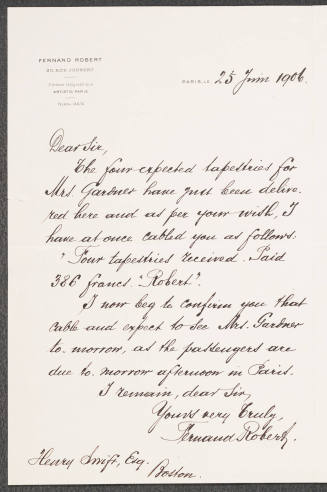 FERNAND ROBERT
30, RUE JOUBERT
ARTISTIC-PARIS
PARIS, LE 25 Juin 1906.
Dear Sir,
The four expected tapestries for
Mrs. Gardner have just been delive-
red here and as per your wish, I
have at once cabled you as follows.
"Four tapestries received. Paid
386 francs. "Robert".
I now beg to confirm you that
cable and expect to see Mrs. Gardner
to-morrow, as the passengers are
due to-morrow afternoon in Paris.
I remain, dear Sir,
Yours very truly,
Fernand Robert.
Henry Swift, Esq.
Boston.